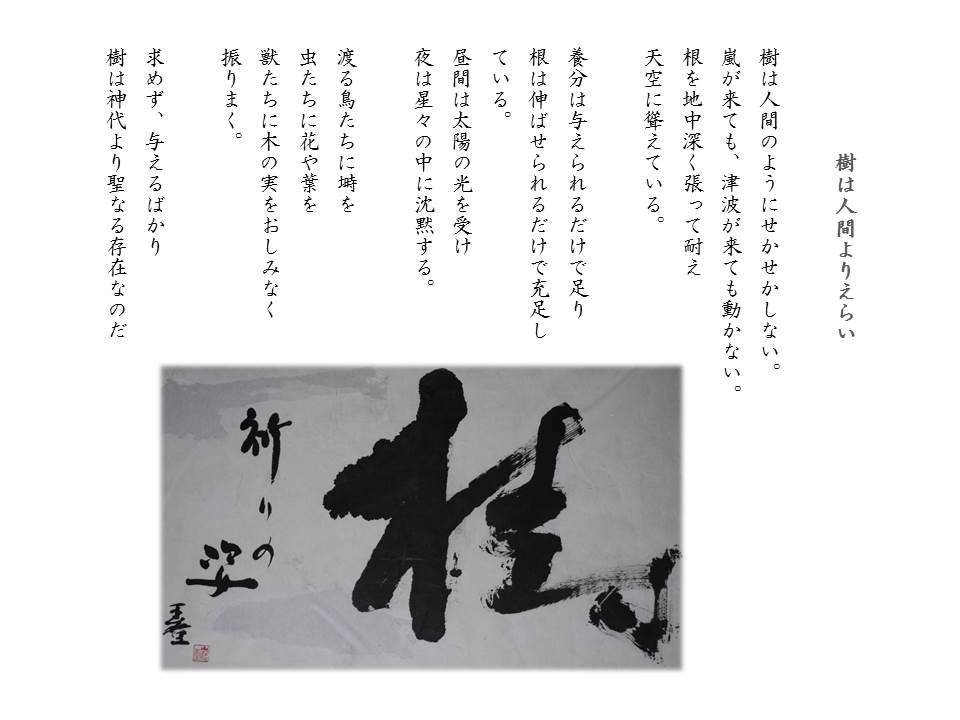 樹は人間よりえらい
樹は人間のようにせかせかしない。
嵐が来ても、津波が来ても動かない。
根を地中深く張って耐え
天空に聳えている。
養分は与えられるだけで足り
根は伸ばせられるだけで充足し
ている。
昼間は太陽の光を受け
夜は星々の中に沈黙する。
渡る鳥たちに塒を
虫たちに花や葉を
獣たちに木の実をおしみなく
振りまく。
求めず、与えるばかり
樹は神代より聖なる存在なのだ
祈りの
姿